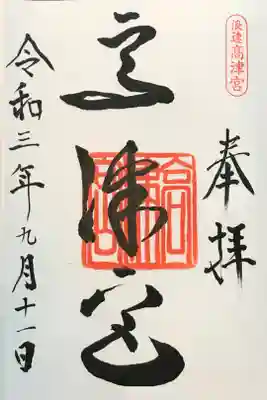 浪速高津宮
奉拝
高津宮
高津宮
令和三年九月十一日